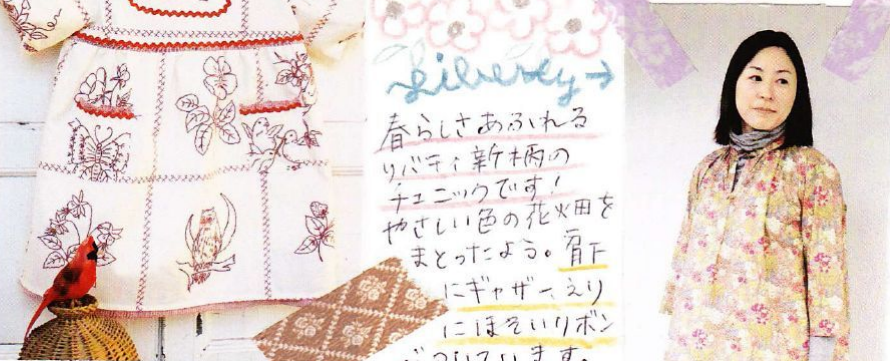 Liberty→
春らしさあふれる
リバティ新柄の
チュニックです!
やさしい色の花畑を
まとったよう。肩下
にギャザー、えり
にほそいリボン
がついています。